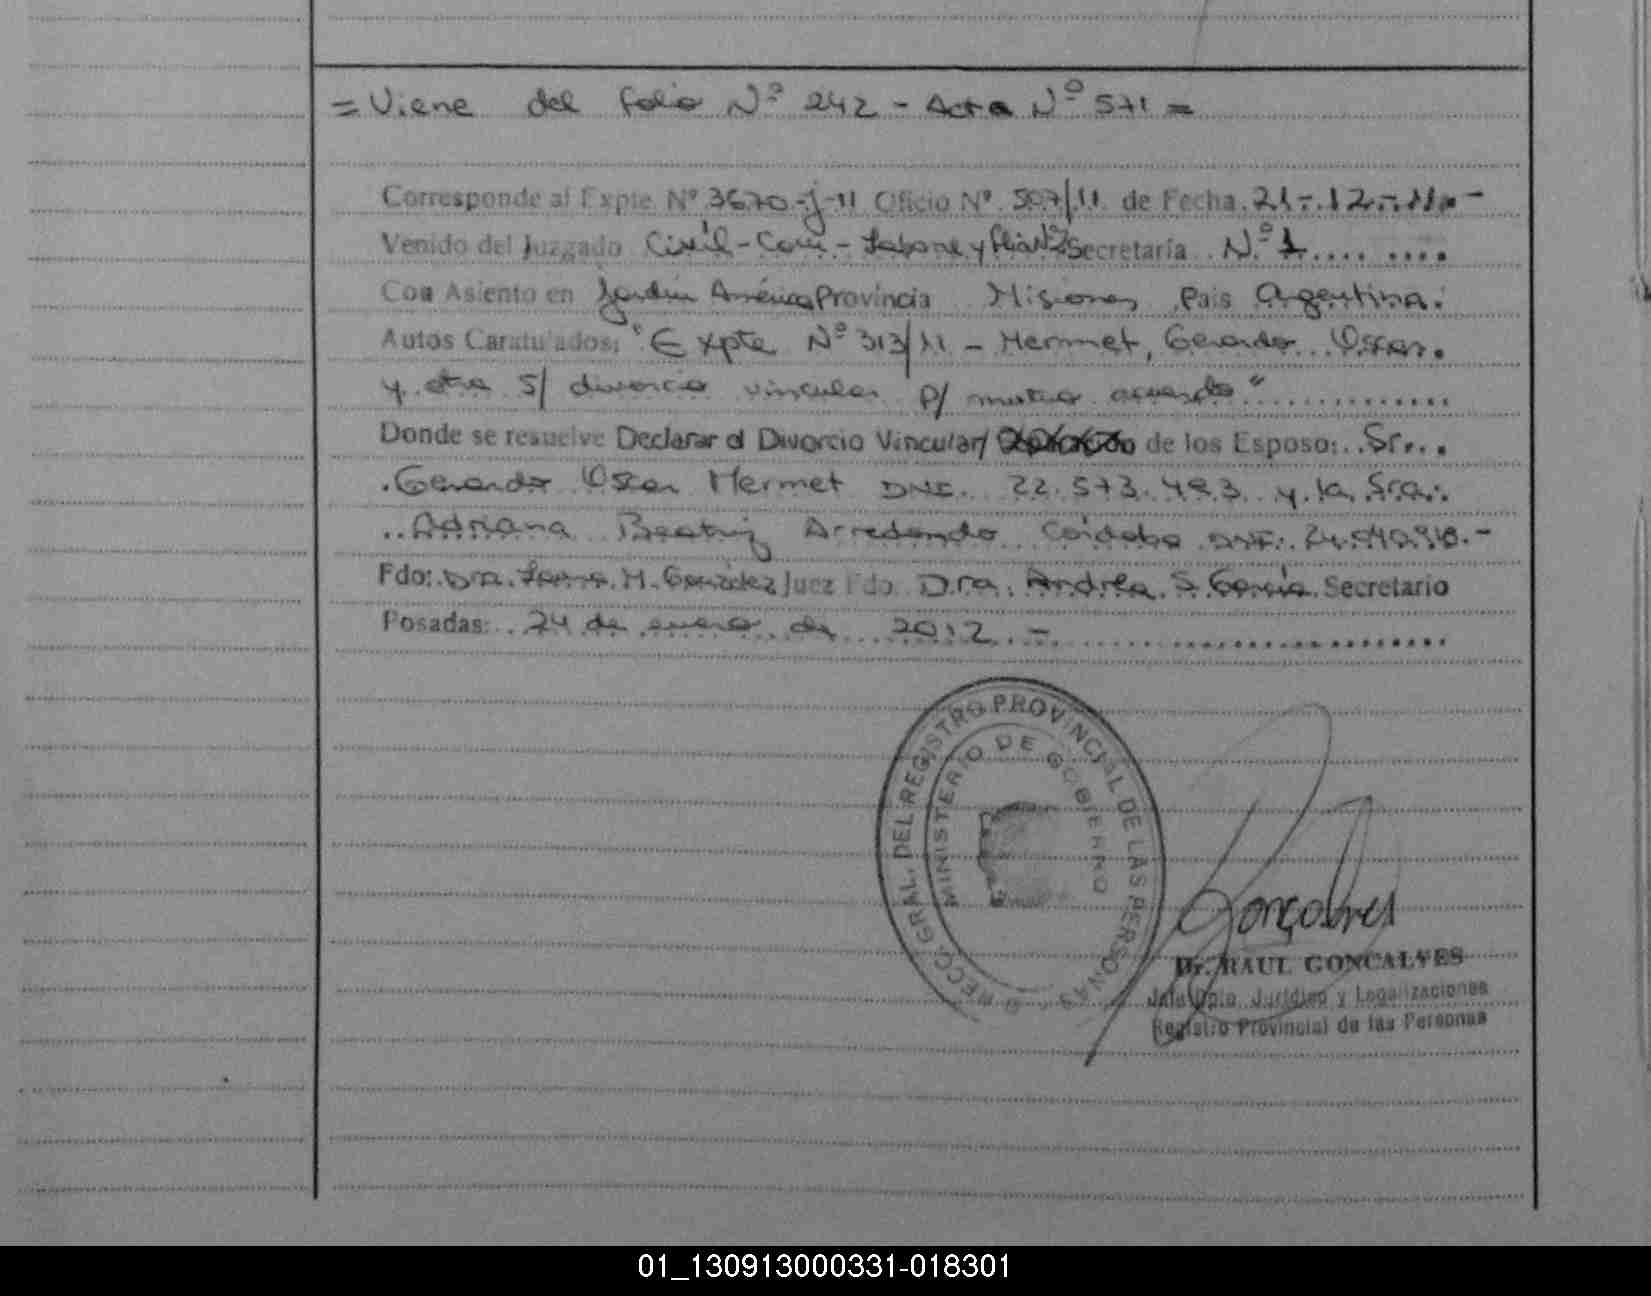 = Viene del folio Nº 242 - Acta Nº 571 =
Corresponde al Expte Nº 3670-j-11 Oficio Nº 507/11 de Fecha 21-12-11 -
Venido del Juzgado Civil - Com - Laboral y Flia Nº 2 Secretaría Nº 1
Con Asiento en Jardín América Provincia Misiones País Argentina.
Autos Caratulados: "Expte Nº 313/11 - Mermet, Gerardo Oscar
y otra S/ divorcio vincular p/ mutuo acuerdo"
Donde se resuelve Declarar el Divorcio Vincular/ de los Esposo: Sr.
Gerardo Oscar Mermet DNI. 22.573.493 y la Sra.
Adriana Beatriz Arredondo Córdoba DNI.
Fdo: Dra. M. González Juez Fdo. Dra. Andrea S. García Secretario
Posadas: 24 de enero de 2012 . -
DIRECC. GRAL. DEL REGISTRO PROVINCIAL DE LAS PERSONAS
MINISTERIO DE GOBIERNO
Gonçalves
Dr. RAUL GONCALVES
Jefe Dpto. Jurídico y Legalizaciones
Registro Provincial de las Personas
01_130913000331-018301